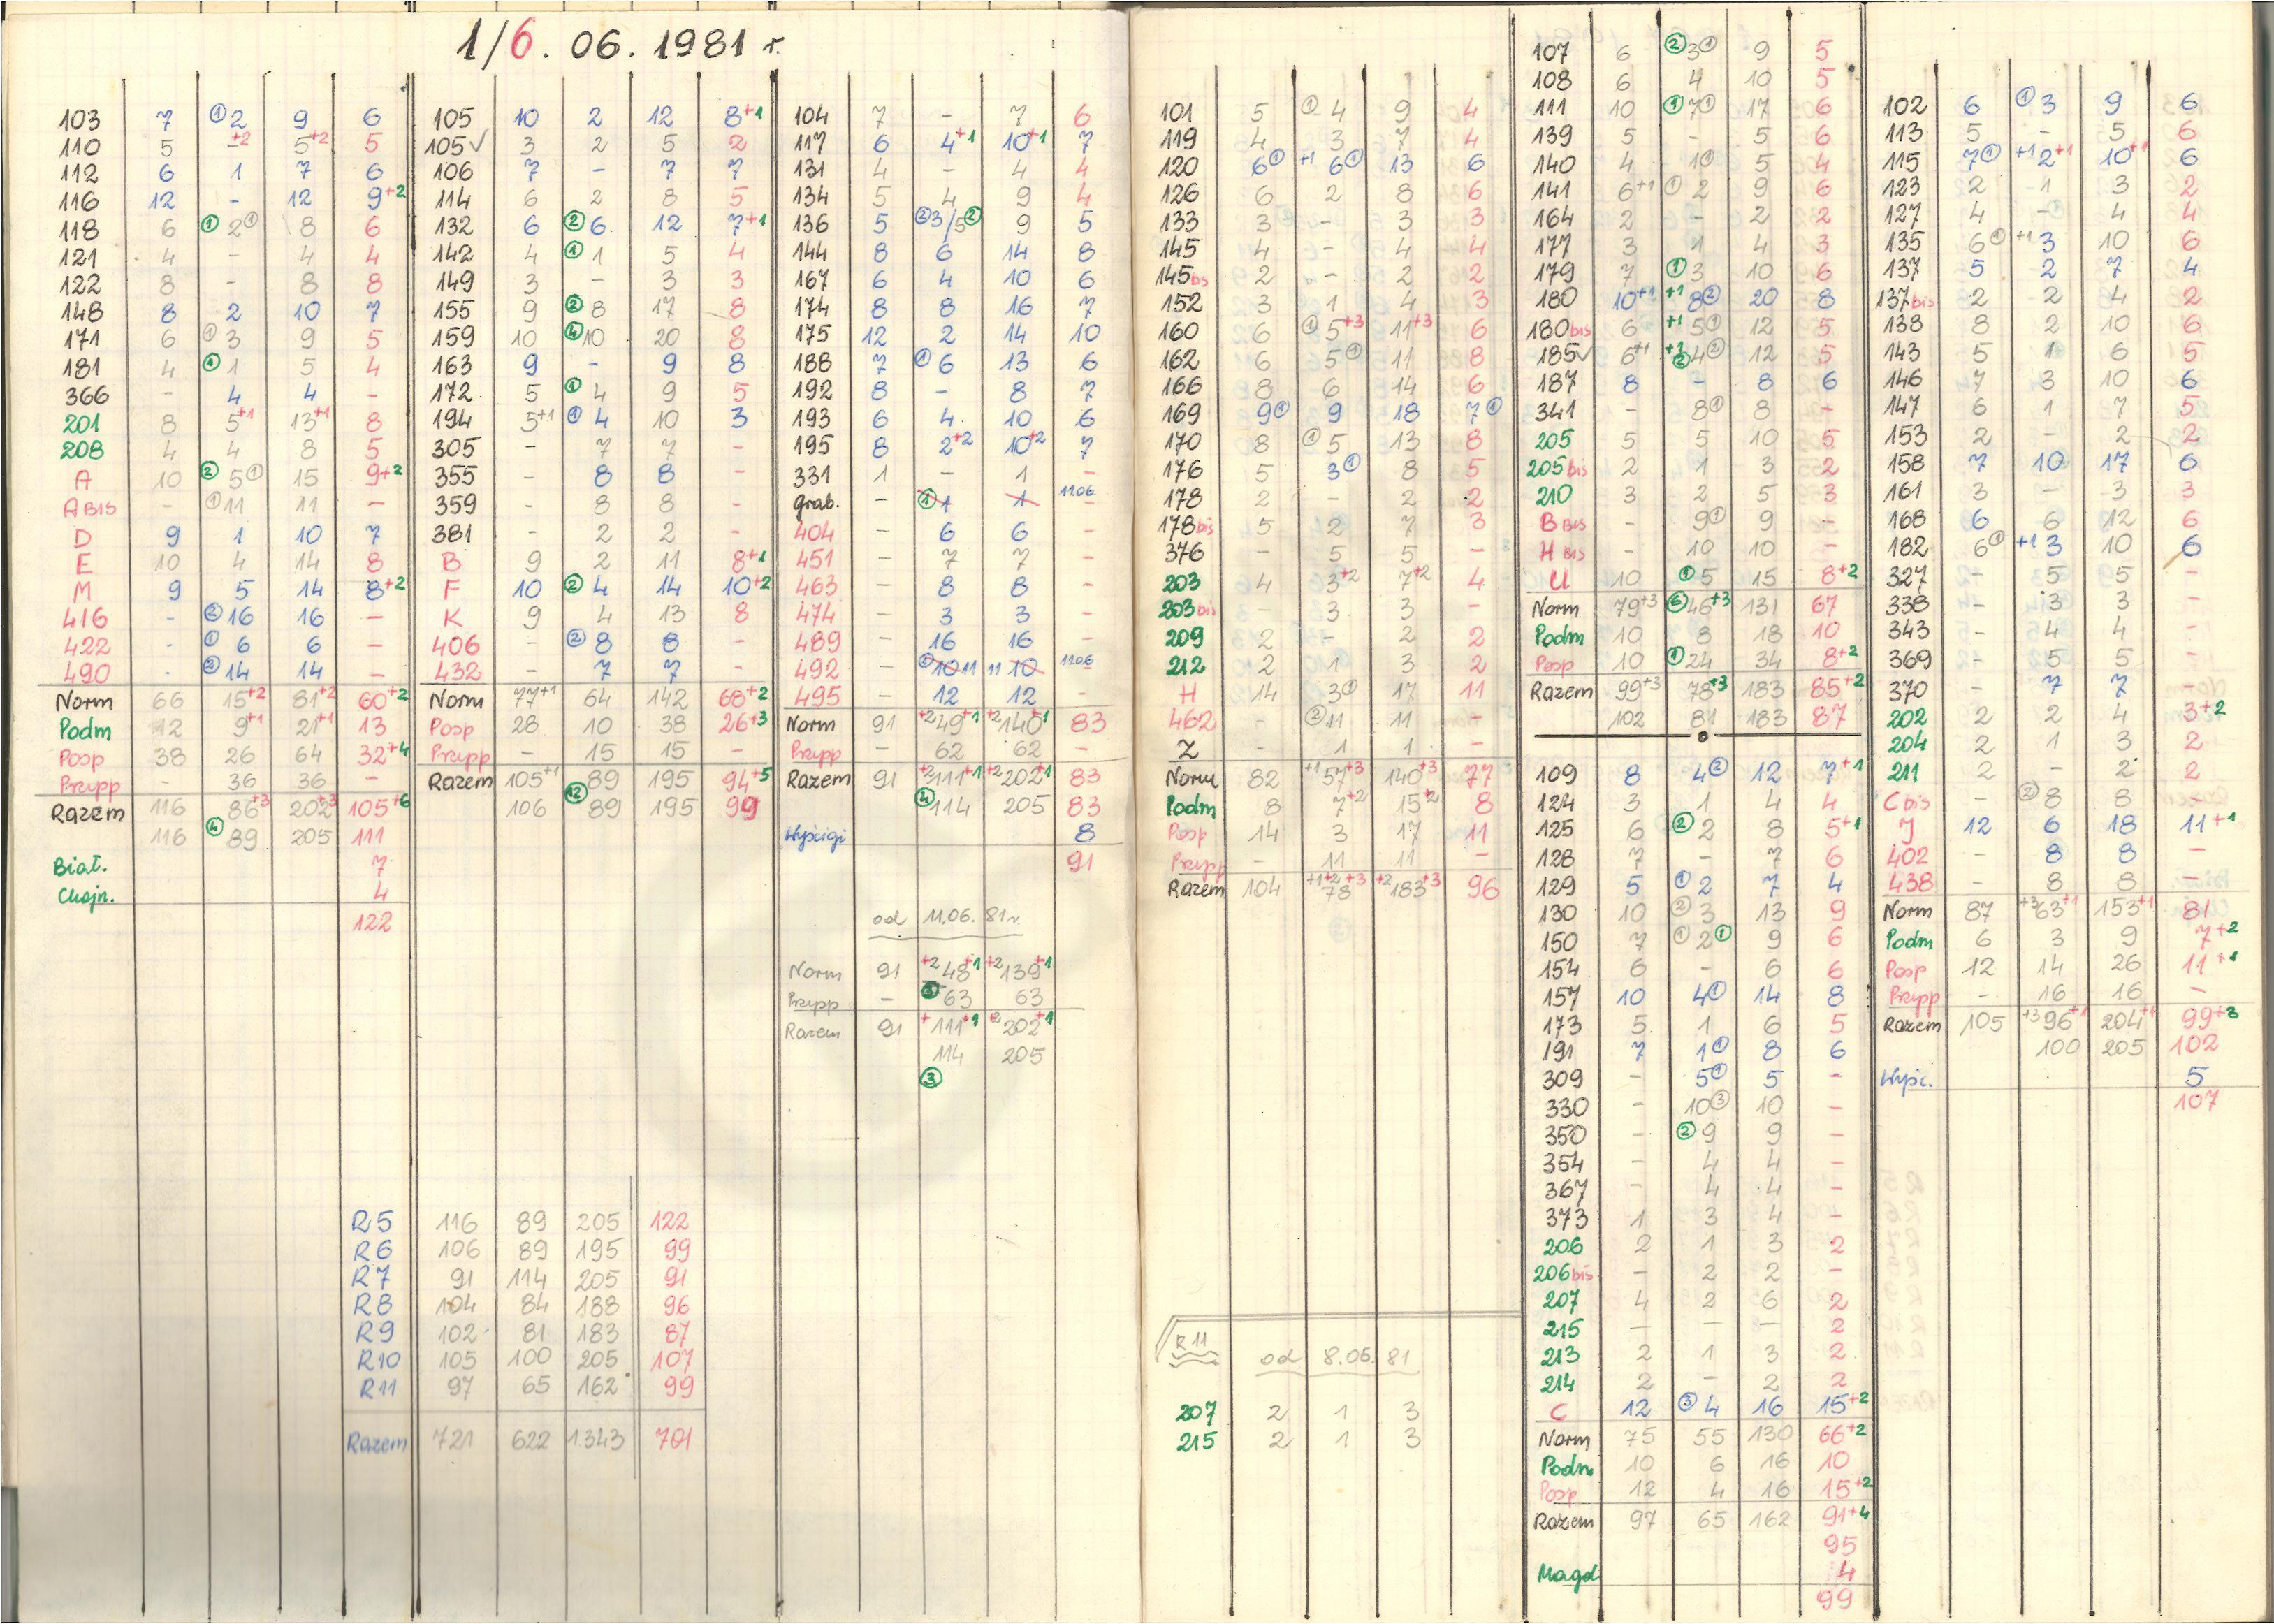 1/6. 06. 1981 r.
103 7 ①2 9 6
110 5 -+2 5+2 5
112 6 1 7 6
116 12 - 12 9+2
118 6 ①2① 8 6
121 4 - 4 4
122 8 - 8 8
148 8 2 10 7
171 6 ①3 9 5
181 4 ①1 5 4
366 - 4 4 -
201 8 5+1 13+1 8
208 4 4 8 5
A 10 ②5① 15 9+2
A BIS - ①11 11 -
D 9 1 10 7
E 10 4 14 8
M 9 5 14 8+2
416 - ②16 16 -
422 - ①6 6 -
490 - ②14 14 -
Norm 66 15+2 81+2 60+2
Podm 12 9+1 21+1 13
Posp 38 26 64 32+4
Przypp - 36 36 -
Razem 116 86+3 202+3 105+6
116 ④89 205 111
Biał. 7
Chojn. 4
122
105 10 2 12 8+1
105✓ 3 2 5 2
106 7 - 7 7
114 6 2 8 5
132 6 ②6 12 7+1
142 4 ①1 5 4
149 3 - 3 3
155 9 ②8 17 8
159 10 ④10 20 8
163 9 - 9 8
172 5 ①4 9 5
194 5+1 ①4 10 3
305 - 7 7 -
355 - 8 8 -
359 - 8 8 -
381 - 2 2 -
B 9 2 11 8+1
F 10 ②4 14 10+2
K 9 4 13 8
406 - ②8 8 -
432 - 7 7 -
Norm 77+1 64 142 68+2
Posp 28 10 38 26+3
Przypp - 15 15 -
Razem 105+1 89 195 94+5
106 ⑫89 195 99
R5 116 89 205 122
R6 106 89 195 99
R7 91 114 205 91
R8 104 84 188 96
R9 102 81 183 87
R10 105 100 205 107
R11 97 65 162 99
Razem 721 622 1343 701
104 7 - 7 6
117 6 4+1 10+1 7
131 4 - 4 4
134 5 4 9 4
136 5 ②3/5② 9 5
144 8 6 14 8
167 6 4 10 6
174 8 8 16 7
175 12 2 14 10
188 7 ①6 13 6
192 8 - 8 7
193 6 4 10 6
195 8 2+2 10+2 7
331 1 - 1 -
grab. - ①1 1 11.06. -
404 - 6 6 -
451 - 7 7 -
463 - 8 8 -
474 - 3 3 -
489 - 16 16 -
492 - ①10 11 11 10 11.06 -
495 - 12 12 -
Norm 91 +2 49+1 +2 140+1 83
Przypp - 62 62 -
Razem 91 +2 111+1 +2 202+1 83
④114 205 83
Wyścigi 8
91
od 11.06. 81r.
Norm 91 +2 48+1 +2 139+1
Przypp - 63 63
Razem 91 + 111+1 +2 202+1
114 205
③
101 5 ①4 9 4
119 4 3 7 4
120 6① +1 6① 13 6
126 6 2 8 6
133 3 - 3 3
145 4 - 4 4
145bis 2 - 2 2
152 3 1 4 3
160 6 ①5+3 11+3 6
162 6 5① 11 8
166 8 6 14 6
169 9① 9 18 7①
170 8 ①5 13 8
176 5 3① 8 5
178 2 - 2 2
178bis 5 2 7 3
376 - 5 5 -
203 4 3+2 7+2 4
203bis - 3 3 -
209 2 - 2 2
212 2 1 3 2
H 14 3① 17 11
462 - ②11 11 -
Z - 1 1 -
Norm 82 +1 57+3 140+3 77
Podm 8 7+2 15+2 8
Posp 14 3 17 11
Przypp - 11 11 -
Razem 104 +1+2 78+3 +2 183+3 96
R11
od 8.06.81
207 2 1 3
215 2 1 3
107 6 ②3① 9 5
108 6 4 10 5
111 10 ①7① 17 6
139 5 - 5 6
140 4 1① 5 4
141 6+1 ①2 9 6
164 2 - 2 2
177 3 1 4 3
179 7 ①3 10 6
180 10+1 +1 8② 20 8
180bis 6 +1 5① 12 5
185✓ 6+1 +1 ②4② 12 5
187 8 - 8 6
341 - 8① 8 -
205 5 5 10 5
205bis 2 1 3 2
210 3 2 5 3
B BIS - 9① 9 -
H BIS - 10 10 -
U 10 ①5 15 8+2
Norm 79+3 ⑥46+3 131 67
Podm 10 8 18 10
Posp 10 ①24 34 8+2
Razem 99+3 78+3 183 85+2
102 81 183 87
109 8 4② 12 7+1
124 3 1 4 4
125 6 ②2 8 5+1
128 7 - 7 6
129 5 ①2 7 4
130 10 ②3 13 9
150 7 ①2① 9 6
154 6 - 6 6
157 10 4① 14 8
173 5 1 6 5
191 7 1① 8 6
309 - 5① 5 -
330 - 10③ 10 -
350 - ②9 9 -
354 - 4 4 -
367 - 4 4 -
373 1 3 4 -
206 2 1 3 2
206bis - 2 2 -
207 4 2 6 2
215 - - - 2
213 2 1 3 2
214 2 - 2 2
C 12 ③4 16 15+2
Norm 75 55 130 66+2
Podm 10 6 16 10
Posp 12 4 16 15+2
Razem 97 65 162 91+4
95
Magd 4
99
102 6 ①3 9 6
113 5 - 5 6
115 7① +1 2+1 10+1 6
123 2 1 3 2
127 4 - 4 4
135 6① +1 3 10 6
137 5 2 7 4
137bis 2 2 4 2
138 8 2 10 6
143 5 1 6 5
146 7 3 10 6
147 6 1 7 5
153 2 - 2 2
158 7 10 17 6
161 3 - 3 3
168 6 6 12 6
182 6① +1 3 10 6
327 - 5 5 -
338 - 3 3 -
343 - 4 4 -
369 - 5 5 -
370 - 7 7 -
202 2 2 4 3+2
204 2 1 3 2
211 2 - 2 2
C bis - ②8 8 -
J 12 6 18 11+1
402 - 8 8 -
438 - 8 8 -
Norm 87 +3 63+1 153+1 81
Podm 6 3 9 7+2
Posp 12 14 26 11+1
Przypp - 16 16 -
Razem 105 +3 96+1 204+1 99+3
100 205 102
Wyśc. 5
107